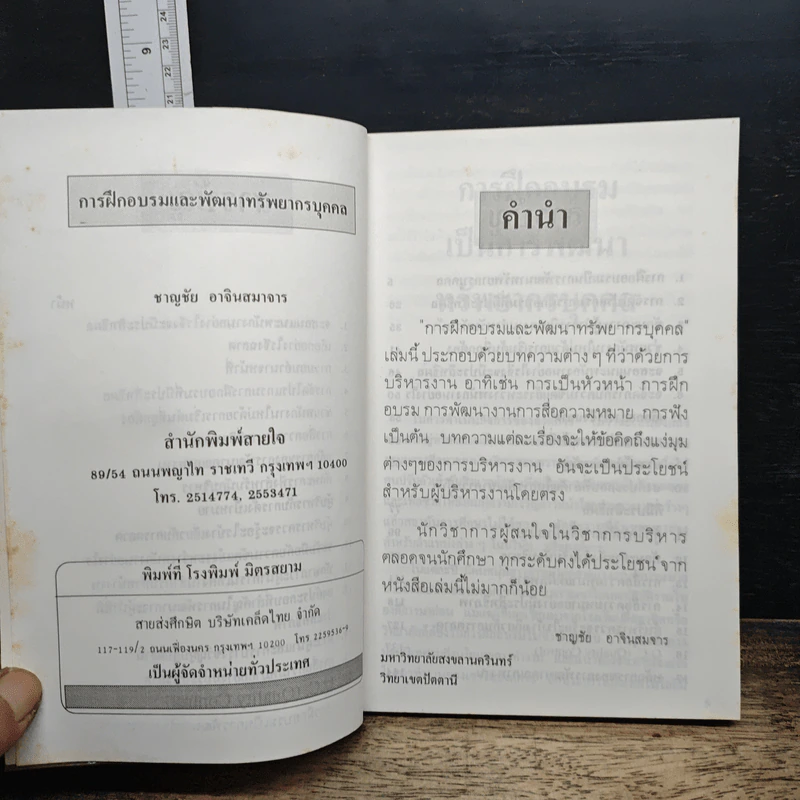 9
24
23
22
21
การฝึกอบรมและพัฒนาทรัพยากรบุคคล
ชาญชัย อาจินสมาจาร
สำนักพิมพ์สายใจ
89/54 ถนนพญาไท ราชเทวี กรุงเทพฯ 10400
โทร. 2514774, 2553471
พิมพ์ที่ โรงพิมพ์ มิตรสยาม
สายส่งศึกษิต บริษัทเคล็ดไทย จำกัด
117-119/2 ถนนเฟื่องนคร กรุงเทพฯ 10200 โทร 2259536-9
เป็นผู้จัดจำหน่ายทั่วประเทศ
คำนำ
"การฝึกอบรมและพัฒนาทรัพยากรบุคคล"
เล่มนี้ ประกอบด้วยบทความต่าง ๆ ที่ว่าด้วยการ
บริหารงาน อาทิเช่น การเป็นหัวหน้า การฝึก
อบรม การพัฒนางานการสื่อความหมาย การฟัง
เป็นต้น บทความแต่ละเรื่องจะให้ข้อคิดถึงแง่มุม
ต่างๆของการบริหารงาน อันจะเป็นประโยชน์
สำหรับผู้บริหารงานโดยตรง
นักวิชาการผู้สนใจในวิชาการบริหาร
ตลอดจนนักศึกษา ทุกระดับคงได้ประโยชน์จาก
หนังสือเล่มนี้ไม่มากก็น้อย
ชาญชัย อาจินสมจาร
มหาวิทยาลัยสงขลานครินทร์
วิทยาเขตปัตตานี